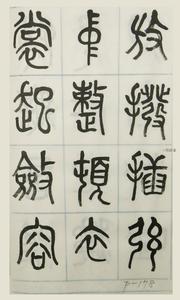 放撥插弦
中整頓衣
裳起斂容